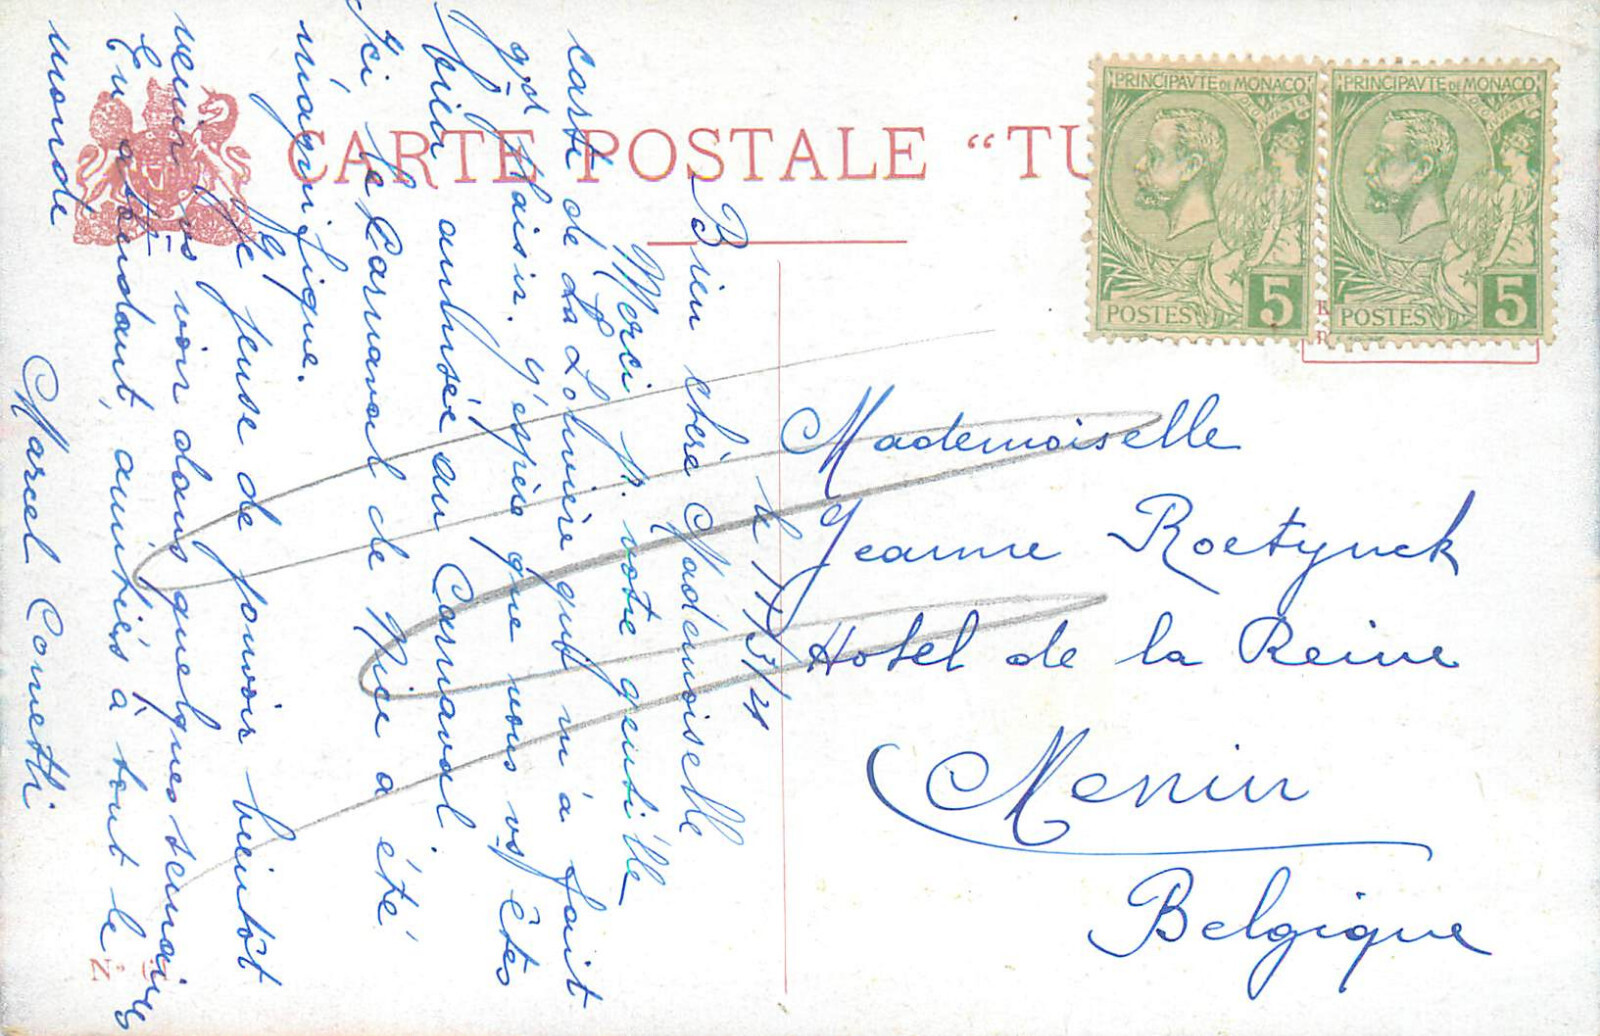 CARTE POSTALE “TU
PRINCIPAVTE DE MONACO
POSTES 5
PRINCIPAVTE DE MONACO
POSTES 5
Mademoiselle
Jeanne Roetynck
Hotel de la Reine
Menin
Belgique
le 11/3/21
Bien chère Mademoiselle
Merci p. votre gentille
carte de La Louvière qui m'a fait
gd plaisir. J'espère que vous vs êtes
bien amusée au Carnaval.
Ici le Carnaval de Nice a été
magnifique.
Je pense de pouvoir bientôt
venir vs voir dans quelques semaines
En attendant, amitiés à tout le
monde
Marcel Cometti